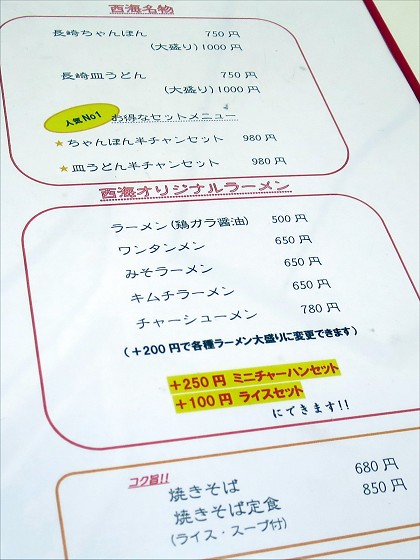 西海名物
長崎ちゃんぽん 750円
(大盛り)1000円
長崎皿うどん 750円
(大盛り)1000円
人気No1 お得なセットメニュー
★ちゃんぽん半チャンセット 980円
★皿うどん半チャンセット 980円
西海オリジナルラーメン
ラーメン(鶏ガラ醤油) 500円
ワンタンメン 650円
みそラーメン 650円
キムチラーメン 650円
チャーシューメン 780円
(+200円で各種ラーメン大盛りに変更できます)
+250円 ミニチャーハンセット
+100円 ライスセット
にできます!!
コク旨!!
焼きそば 680円
焼きそば定食 850円
(ライス・スープ付)